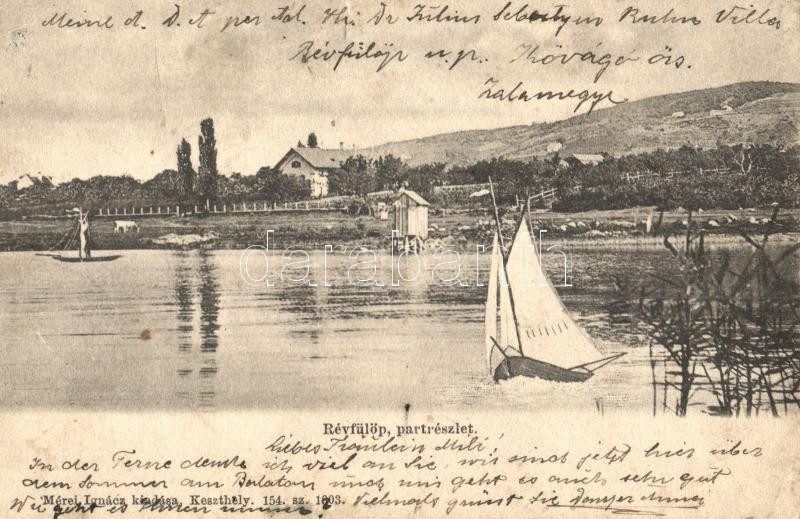 Meine d. D. A per Adr. Hr. Dr Július Sebestyen Ruhn Villa
Révfülöp u. p. Kővágó örs.
Zalamegye
darabanth
Révfülöp, partrészlet.
Liebes Fräulein Mili!
In der Ferne denke ich viel an Sie, wir sind jetzt hier über
dem Sommer am Balaton und mir geht es auch sehr gut
Mérei Ignácz kiadása, Keszthely. 154. sz. 1903.
Wie geht es Ihnen immer? Vielmals grüsst Sie